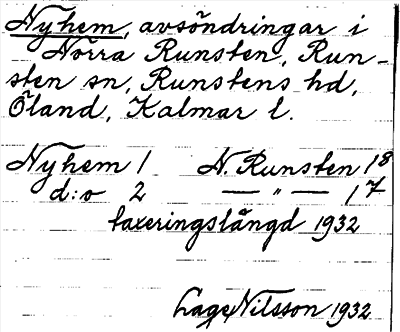 Nyhem, avsöndringar i
Norra Runsten, Run-
sten sn, Runstens hd,
Öland, Kalmar l.
Nyhem 1 N. Runsten 1⁸
d:o 2 — " — 1⁷
taxeringslängd 1932
Lage Nilsson 1932